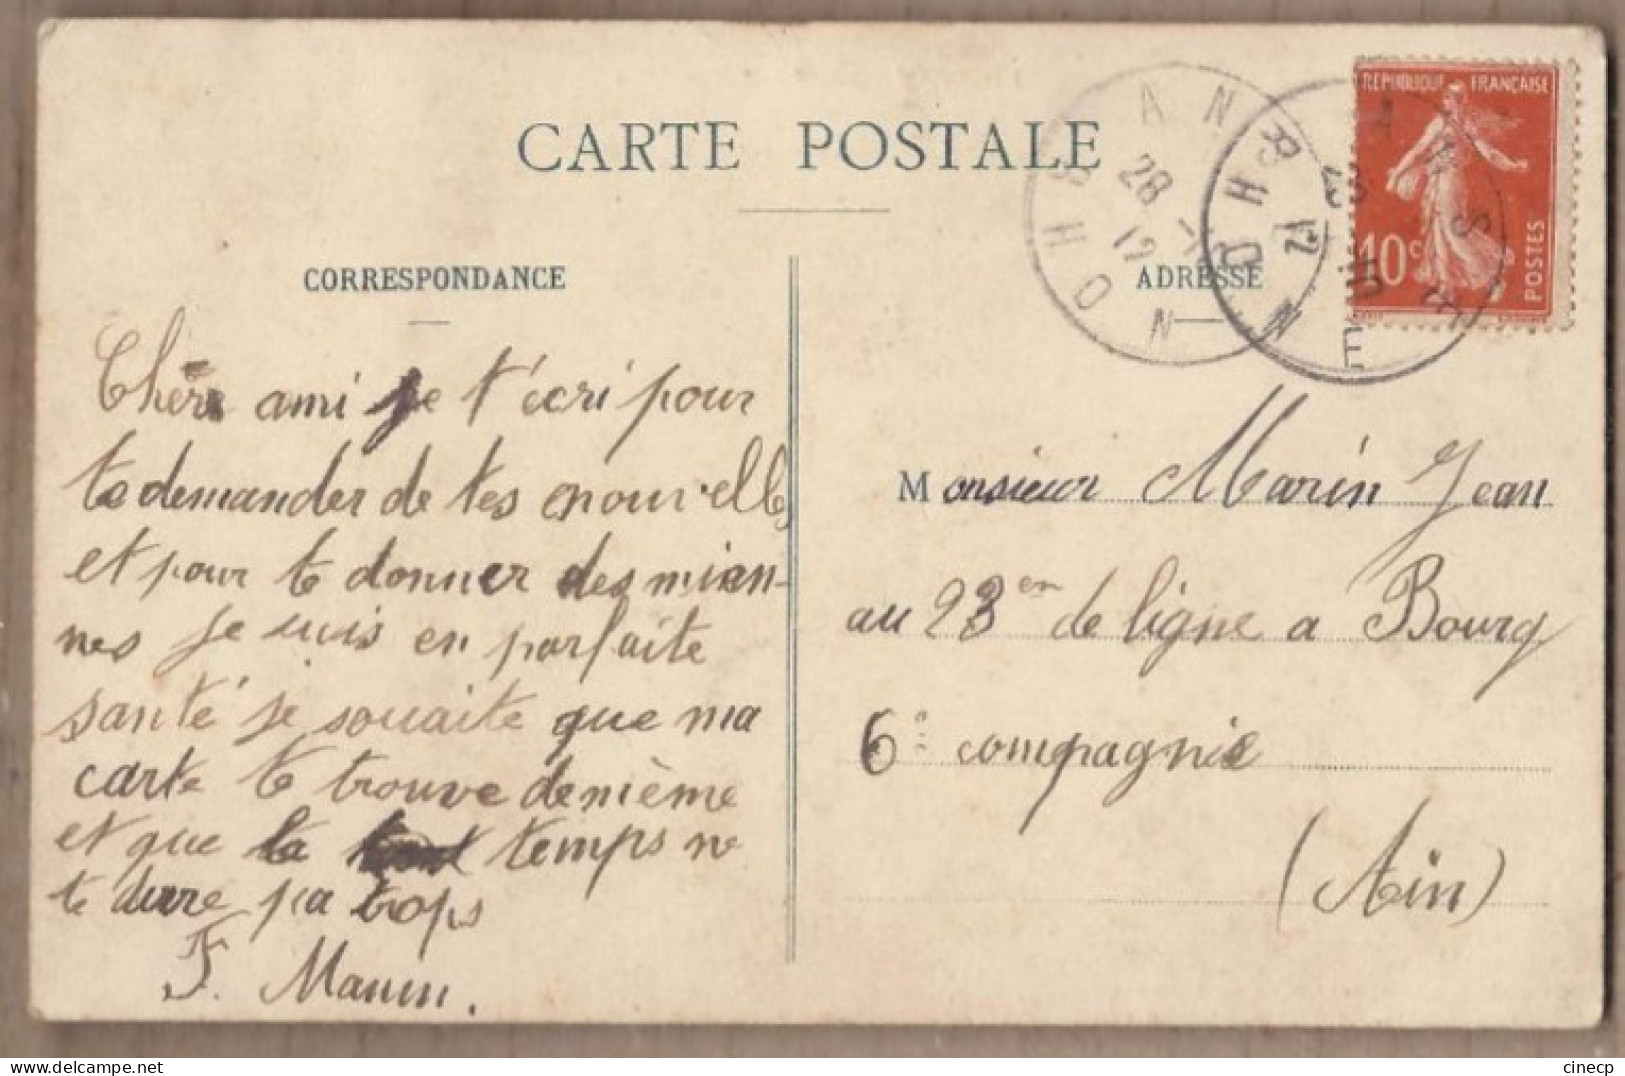 CARTE POSTALE
CORRESPONDANCE
Chère ami je t'écri pour
te demander de tes nouvelles
et pour te donner des mien-
nes je suis en parfaite
santé je souaite que ma
carte te trouve de mième
et que le temps ne
te dure pa trops
F. Manin.
REPUBLIQUE FRANÇAISE
10c POSTES
28 - 7
12
ADRESSE
Monsieur Marin Jean
au 23em de ligne a Bourg
6e compagnie
(Ain)
cinecp